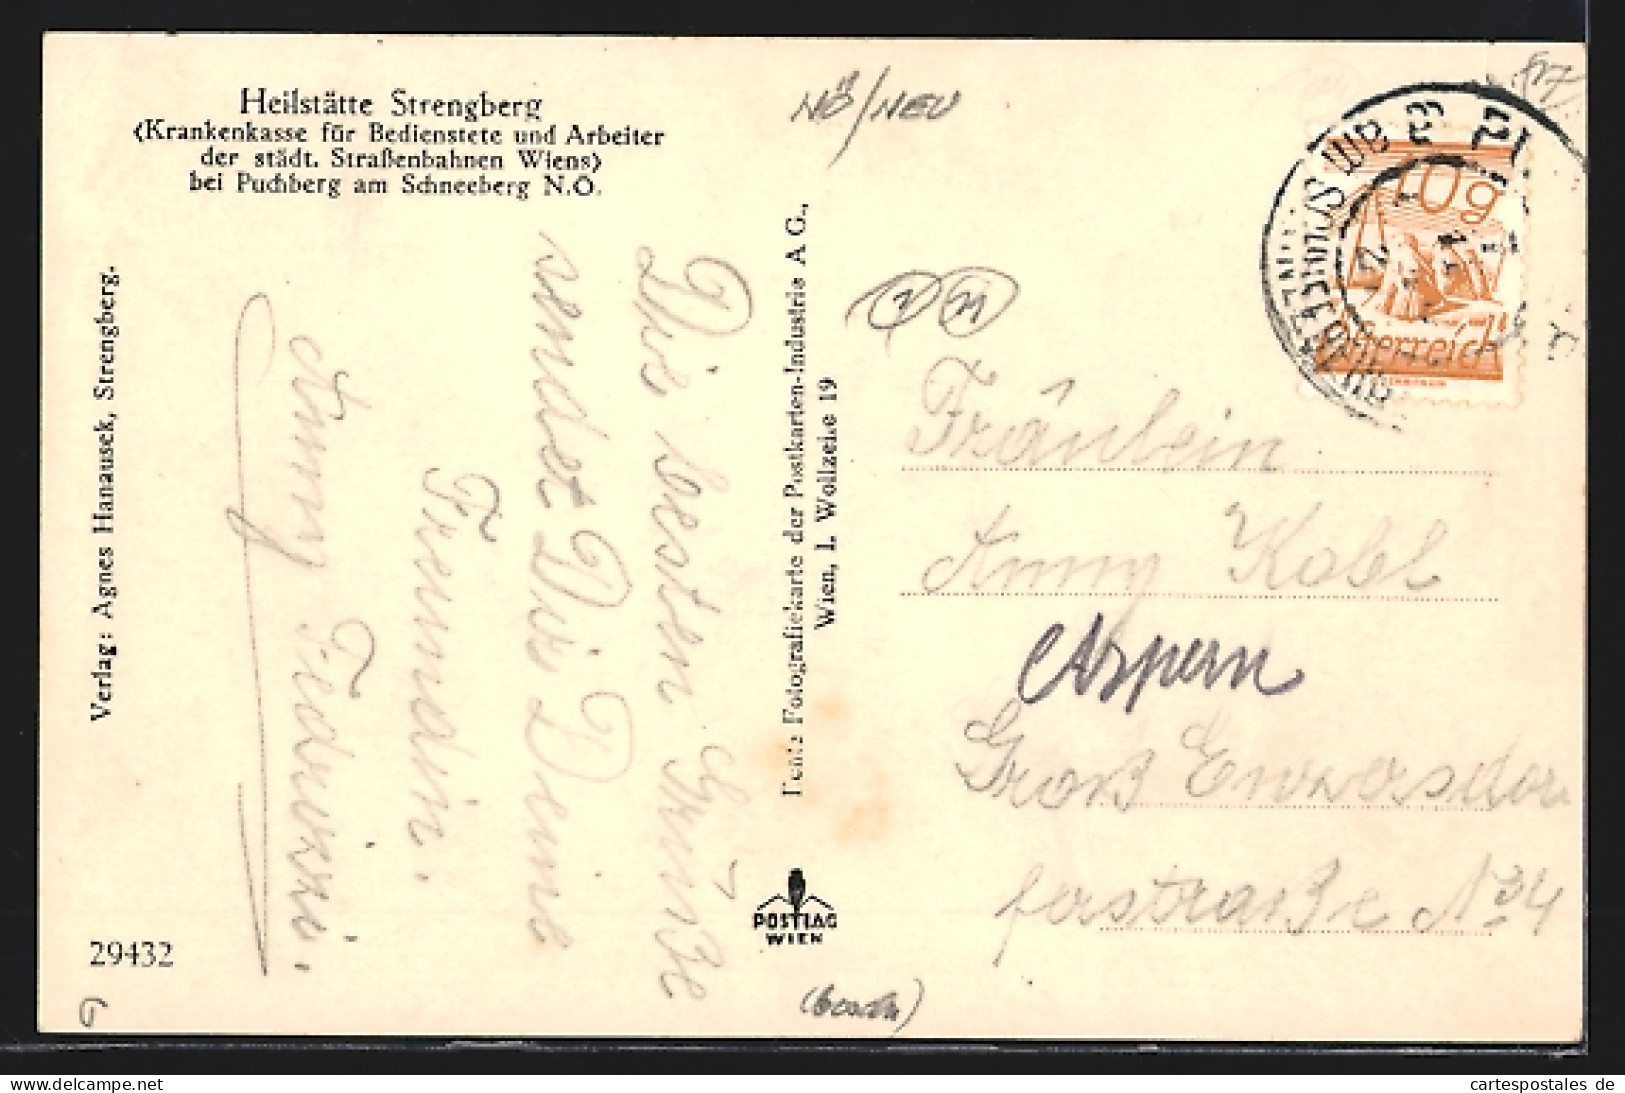 Heilstätte Strengberg
(Krankenkasse für Bedienstete und Arbeiter
der städt. Straßenbahnen Wiens)
bei Puchberg am Schneeberg N.Ö.
Verlag: Agnes Hanausek, Strengberg.
29432
NÖ/NEU
Die besten Grüße
sendet Dir Deine
Freundin.
Anny
Echte Fotografiekarte der Postkarten-Industrie A G.,
Wien, I. Wollzeile 19
POSTIAG
WIEN
10g
Österreich
Fräulein
Anny Kobl
Aspern
Groß Enzersdor
ferstraße No 34
delcampe.net
cartespostales de